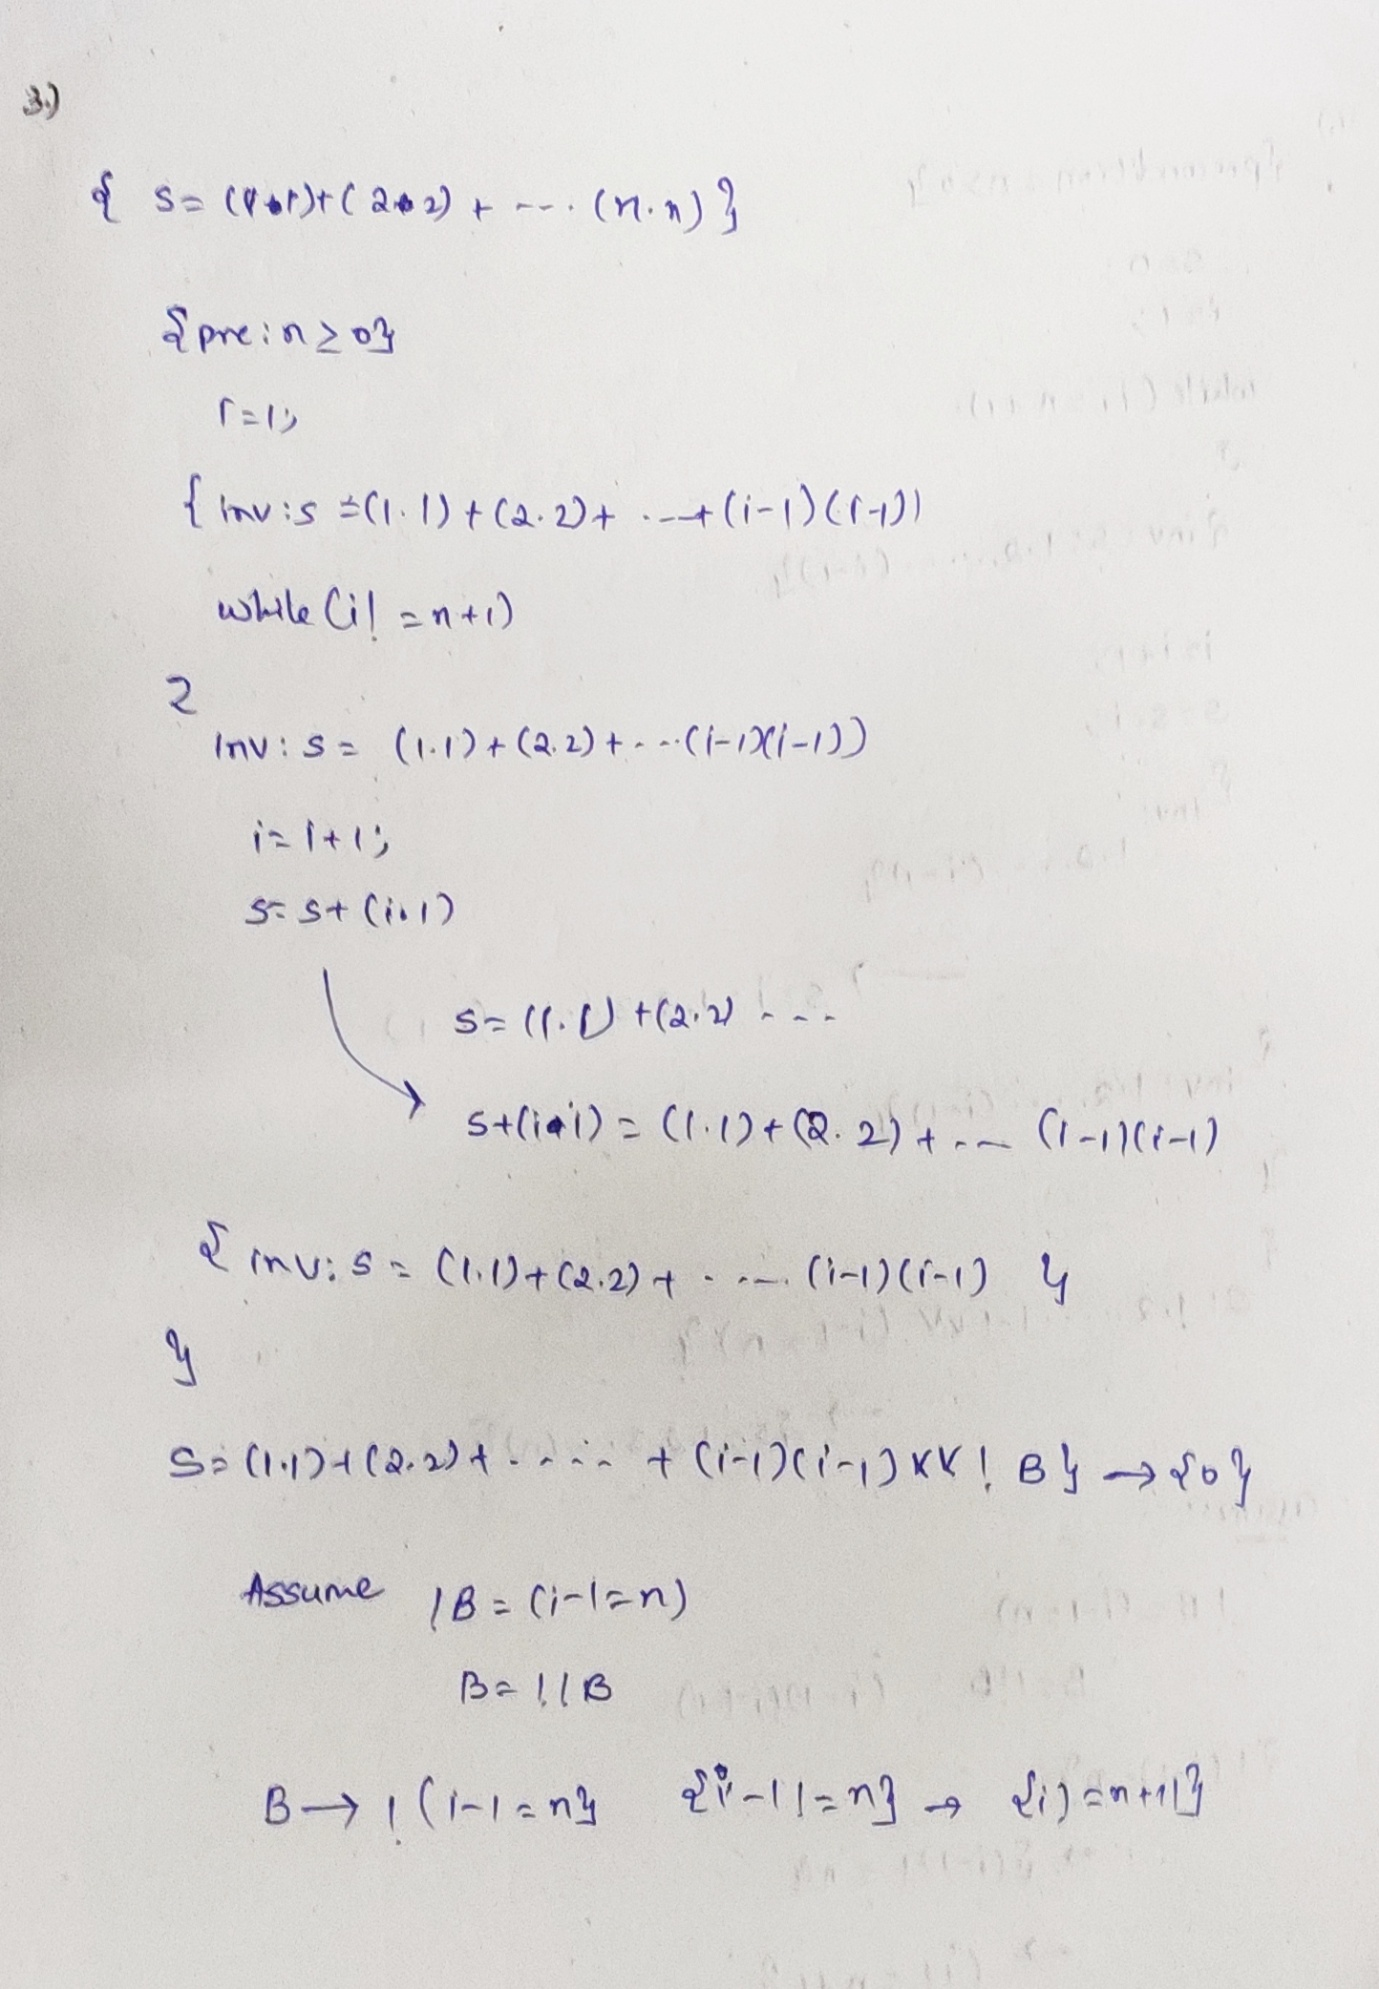 3.)
{ S= (1.1)+(2.2) + --- . (n.n) }
{pre: n ≥ 0}
i=1;
{ inv: s =(1.1)+(2.2)+ ..-+(i-1)(i-1))
while (i! =n+1)
{
inv: s= (1.1)+(2.2)+---(i-1)(i-1))
i=i+1;
s= s+(i.i)
s= (1.1)+(2.2) ---
s+(i.i) = (1.1)+(2.2)+--- (i-1)(i-1)
{ inv: s = (1.1)+(2.2)+ ---- (i-1)(i-1) }
}
S= (1.1)+(2.2)+ ..... + (i-1)(i-1) && ! B} → {0}
Assume !B = (i-1=n)
B= !!B
B→ !(i-1=n} {i-1!=n} → {i!=n+1}